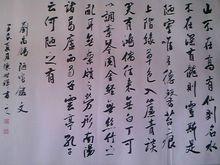 山不在高有仙則名水
不在深有龍則靈斯是
陋室惟吾德馨苔痕
上階綠草色入簾青談
笑有鴻儒往來無白丁可以
調素琴閱金經無絲竹之
亂耳無案牘之勞形南陽
諸葛廬西蜀子雲亭孔子
云何陋之有
劉禹錫陋室銘文